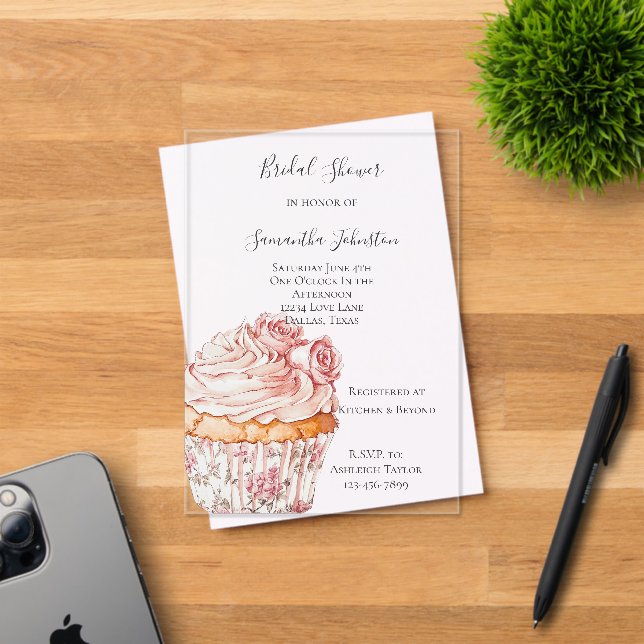 Bridal Shower
IN HONOR OF
Samantha Johnston
Saturday June 4th
One O'Clock In the
Afternoon
12234 Love Lane
Dallas, Texas
Registered at
Kitchen & Beyond
R.S.V.P. to:
Ashleigh Taylor
123-456-7899